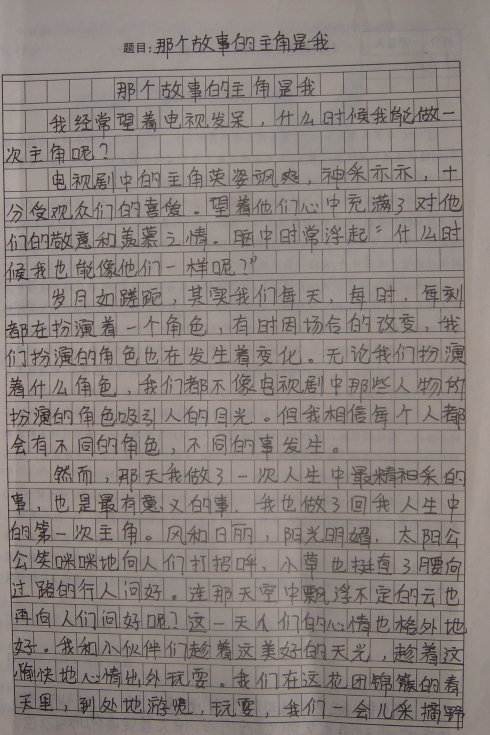 题目:那个故事的主角是我
那个故事的主角是我
我经常望着电视发呆，什么时候我能做一
次主角呢？
电视剧中的主角英姿飒爽，神采亦亦，十
分受观众们的喜爱。望着他们心中充满了对他
们的敬意和羡慕之情。脑中时常浮起“什么时
候我也能像他们一样呢？”
岁月如蹉跎，其实我们每天，每时，每刻
都在扮演着一个角色，有时因场合的改变，我
们扮演的角色也在发生着变化。无论我们扮演
着什么角色，我们都不像电视剧中那些人物所
扮演的角色吸引人的目光。但我相信每个人都
会有不同的角色，不同的事发生。
然而，那天我做了一次人生中最精神采的
事，也是最有意义的事，我也做了回我人生中
的第一次主角。风和日丽，阳光明媚，太阳公
公笑咪咪地向人们打招呼，小草也挺直了腰向
过路的行人问好。连那天空中飘浮不定的云也
再向人们问好呢？这一天人们的心情也格外地
好。我和小伙伴们趁着这美好的天光，趁着这
愉快地心情出外玩耍。我们在这花团锦簇的春
天里，到外地游晃，玩耍，我们一会儿采摘野